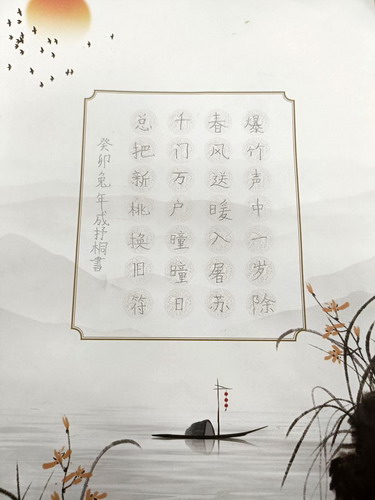 爆竹声中一岁除
春风送暖入屠苏
千门万户曈曈日
总把新桃换旧符
癸卯兔年成抒桐書